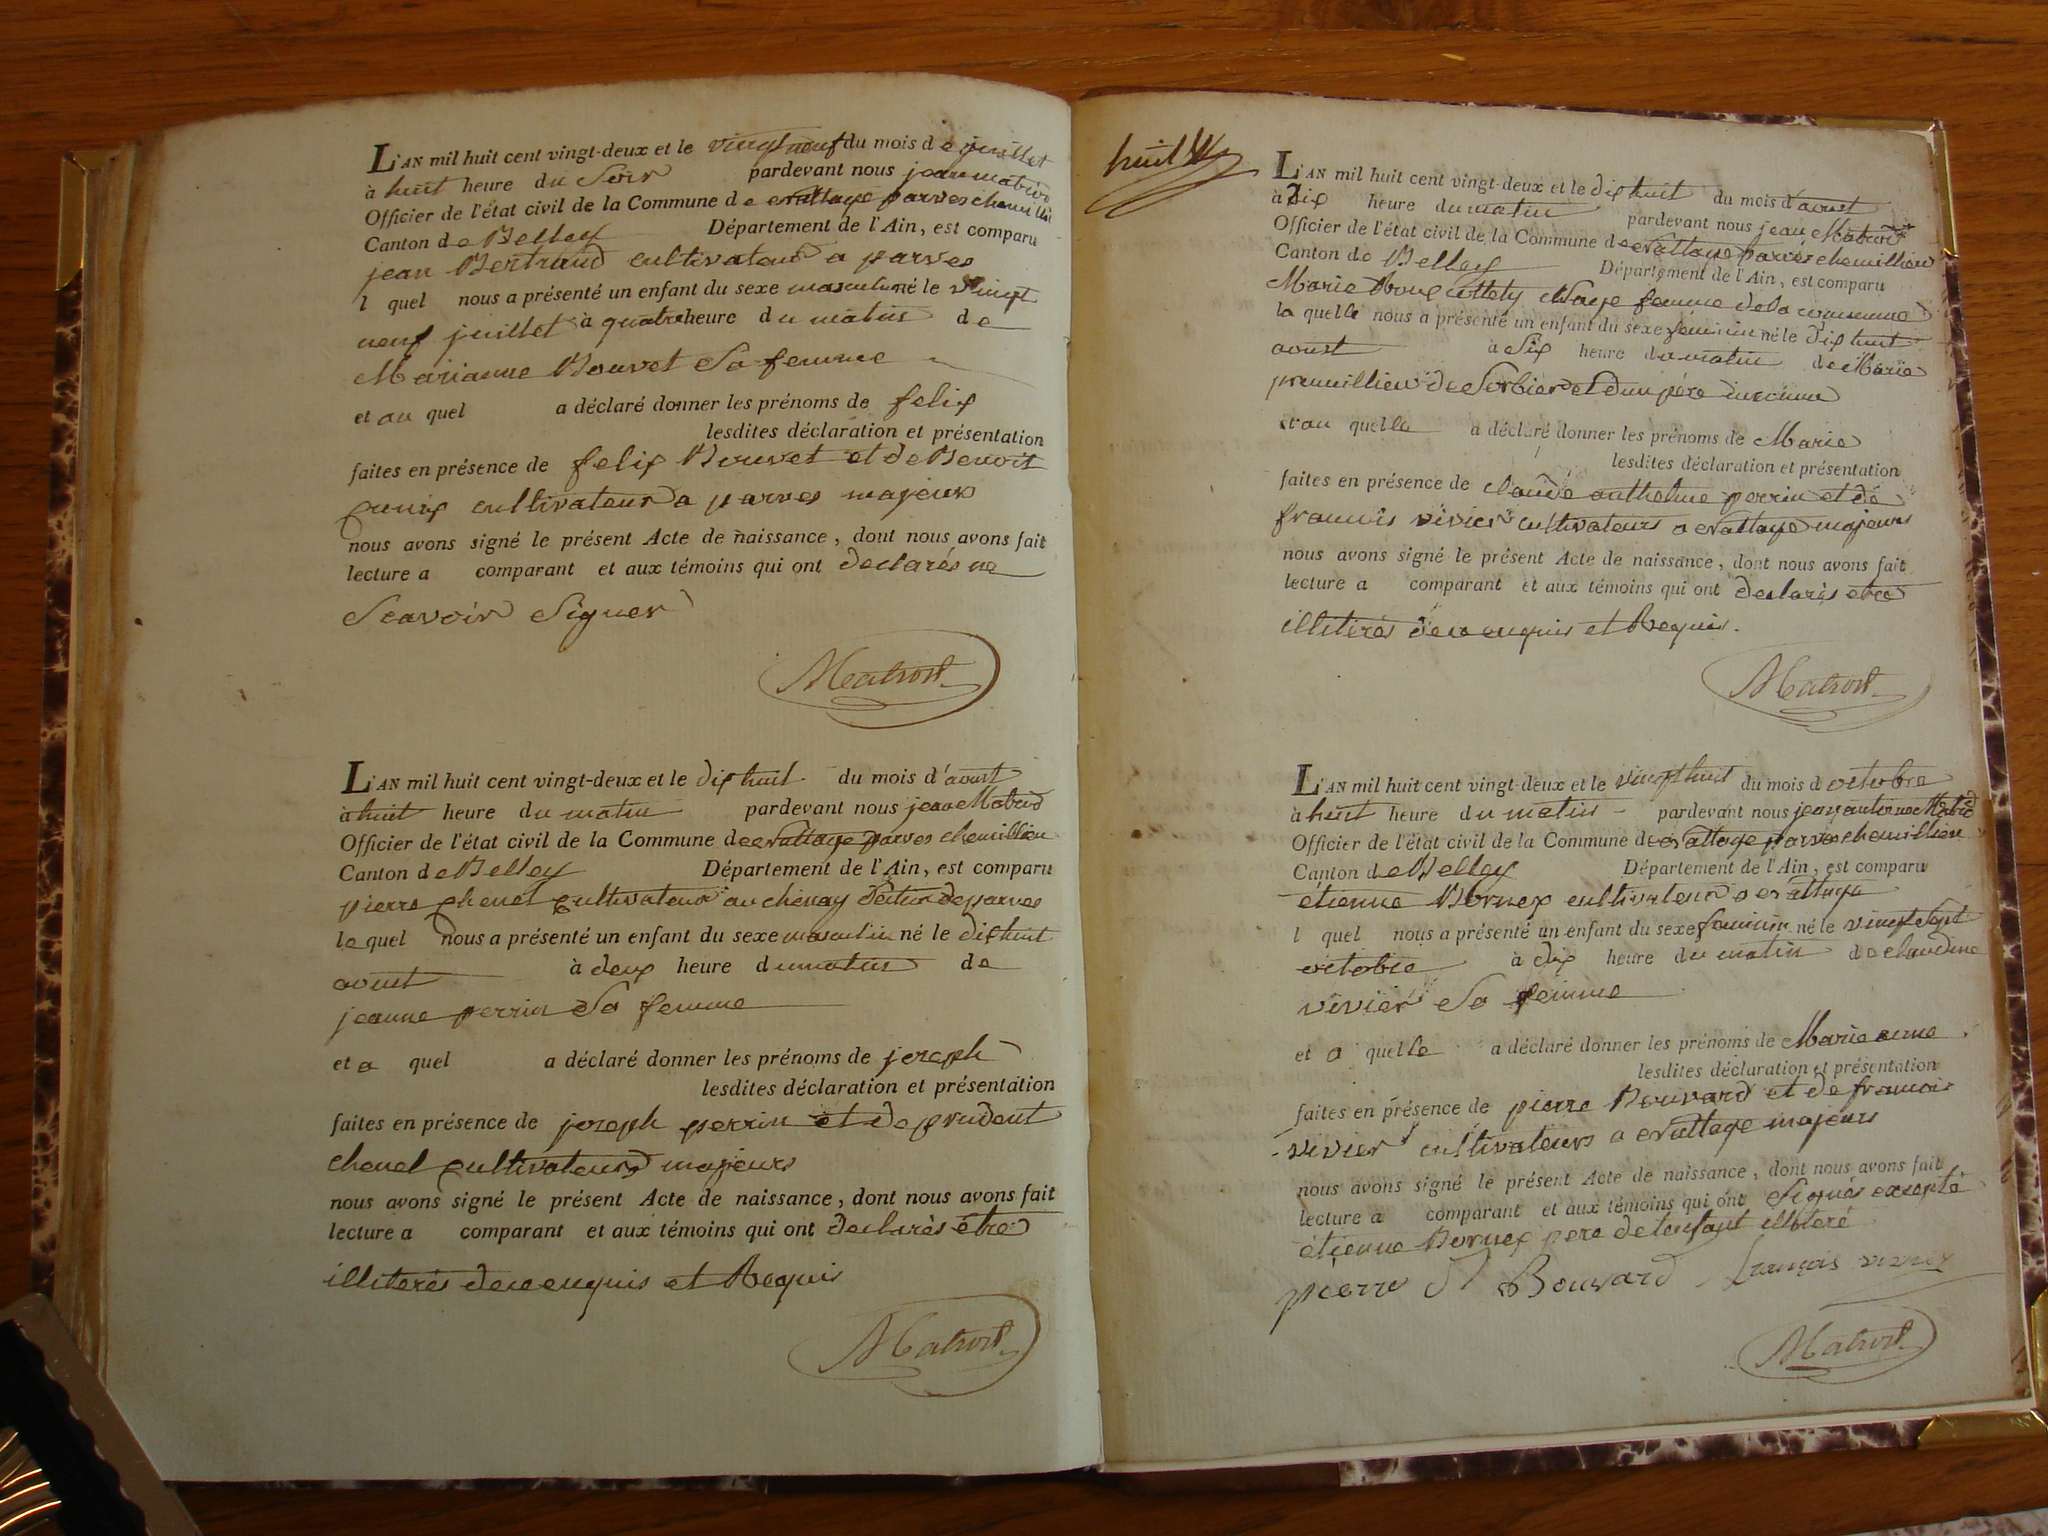 L'AN mil huit cent vingt-deux et le vingt neuf du mois de juillet
à huit heure du soir pardevant nous jean
Officier de l'état civil de la Commune de parves
Canton de Belley Département de l'Ain, est comparu
jean Bertrand cultivateur a parves
l quel nous a présenté un enfant du sexe masculin né le vingt
neuf juillet à quatre heure du matin de
Marianne Bouvet Sa femme
et au quel a déclaré donner les prénoms de felix
lesdites déclaration et présentation
faites en présence de felix Bouvet et de Benoit
cultivateurs a parves majeurs
nous avons signé le présent Acte de naissance, dont nous avons fait
lecture a comparant et aux témoins qui ont declarés ne
Scavoir Signer
L'AN mil huit cent vingt-deux et le dix huit du mois d'aoust
à huit heure du matin pardevant nous jean
Officier de l'état civil de la Commune de parves
Canton de Belley Département de l'Ain, est comparu
pierre chenel cultivateur au de parves
le quel nous a présenté un enfant du sexe masculin né le dix huit
aoust à deux heure du matin de
jeanne perrin Sa femme
et a quel a déclaré donner les prénoms de joseph
lesdites déclaration et présentation
faites en présence de joseph perrin et de prudent
chenel cultivateurs majeurs
nous avons signé le présent Acte de naissance, dont nous avons fait
lecture a comparant et aux témoins qui ont declarés être
illiterés de ce enquis et Requis
huit
L'AN mil huit cent vingt-deux et le dix huit du mois d'aoust
à dix heure du matin pardevant nous jean
Officier de l'état civil de la Commune de parves
Canton de Belley Département de l'Ain, est comparu
Marie Sage femme de la commune
la quelle nous a présenté un enfant du sexe féminin né le dix huit
aoust à Six heure du matin de Marie
et d'un père inconnu
et au quelle a déclaré donner les prénoms de Marie
lesdites déclaration et présentation
faites en présence de claude anthelme perrin et de
francois vivier cultivateurs a majeurs
nous avons signé le présent Acte de naissance, dont nous avons fait
lecture a comparant et aux témoins qui ont declarés etre
illitirés de ce enquis et Requis.
L'AN mil huit cent vingt-deux et le vingt huit du mois d octobre
à huit heure du matin pardevant nous jean antoine
Officier de l'état civil de la Commune de parves
Canton de Belley Département de l'Ain, est comparu
étienne Bornex cultivateur a
l quel nous a présenté un enfant du sexe feminin né le vingt Sept
octobre à dix heure du matin de claudine
vivier Sa femme
et a quelle a déclaré donner les prénoms de Marie anne
lesdites déclaration et présentation
faites en présence de pierre Bouvard et de francois
vivier cultivateurs a majeurs
nous avons signé le présent Acte de naissance, dont nous avons fait
lecture a comparant et aux témoins qui ont Signés excepté
étienne Bornex pere de lenfant illiteré
pierre Bouvard françois vivier